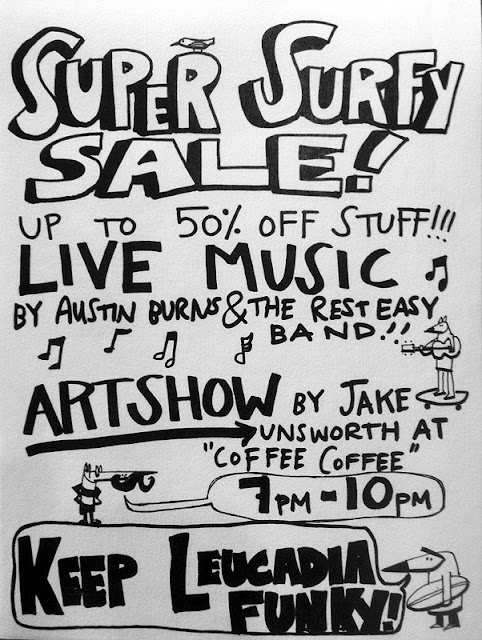 SUPER SURFY
SALE!
UP TO 50% OFF STUFF!!!
LIVE MUSIC
BY AUSTIN BURNS & THE REST EASY
BAND!!
ARTSHOW BY JAKE
UNSWORTH AT
"COFFEE COFFEE"
7PM - 10PM
KEEP LEUCADIA
FUNKY!